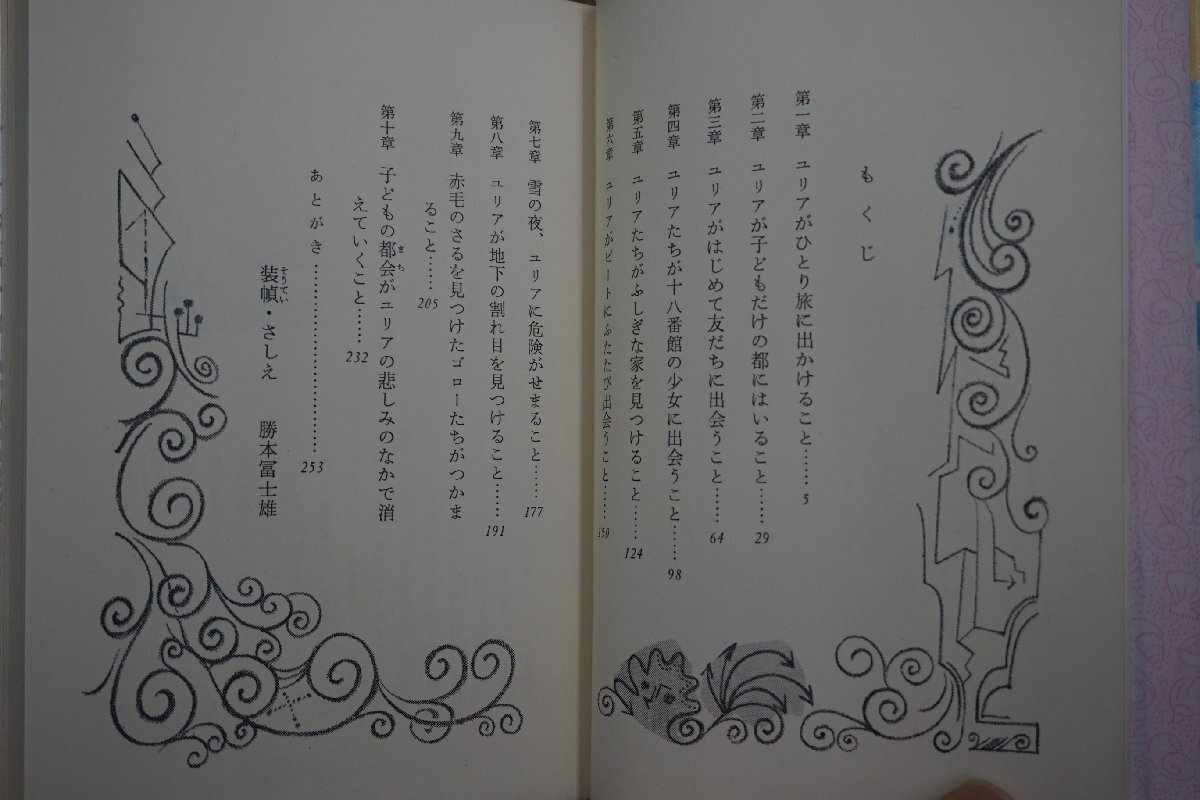 もくじ
第一章　ユリアがひとり旅に出かけること……5
第二章　ユリアが子どもだけの都にはいること……29
第三章　ユリアがはじめて友だちに出会うこと……64
第四章　ユリアたちが十八番館の少女に出会うこと……98
第五章　ユリアたちがふしぎな家を見つけること……124
第六章　ユリアがピートにふたたび出会うこと……150
第七章　雪の夜、ユリアに危険がせまること……177
第八章　ユリアが地下の割れ目を見つけること……191
第九章　赤毛のさるを見つけたゴローたちがつかま
ること……205
第十章　子どもの都会がユリアの悲しみのなかで消
まち
えていくこと……232
あとがき……………………………253
装幀・さしえ　勝本冨士雄
そうてい